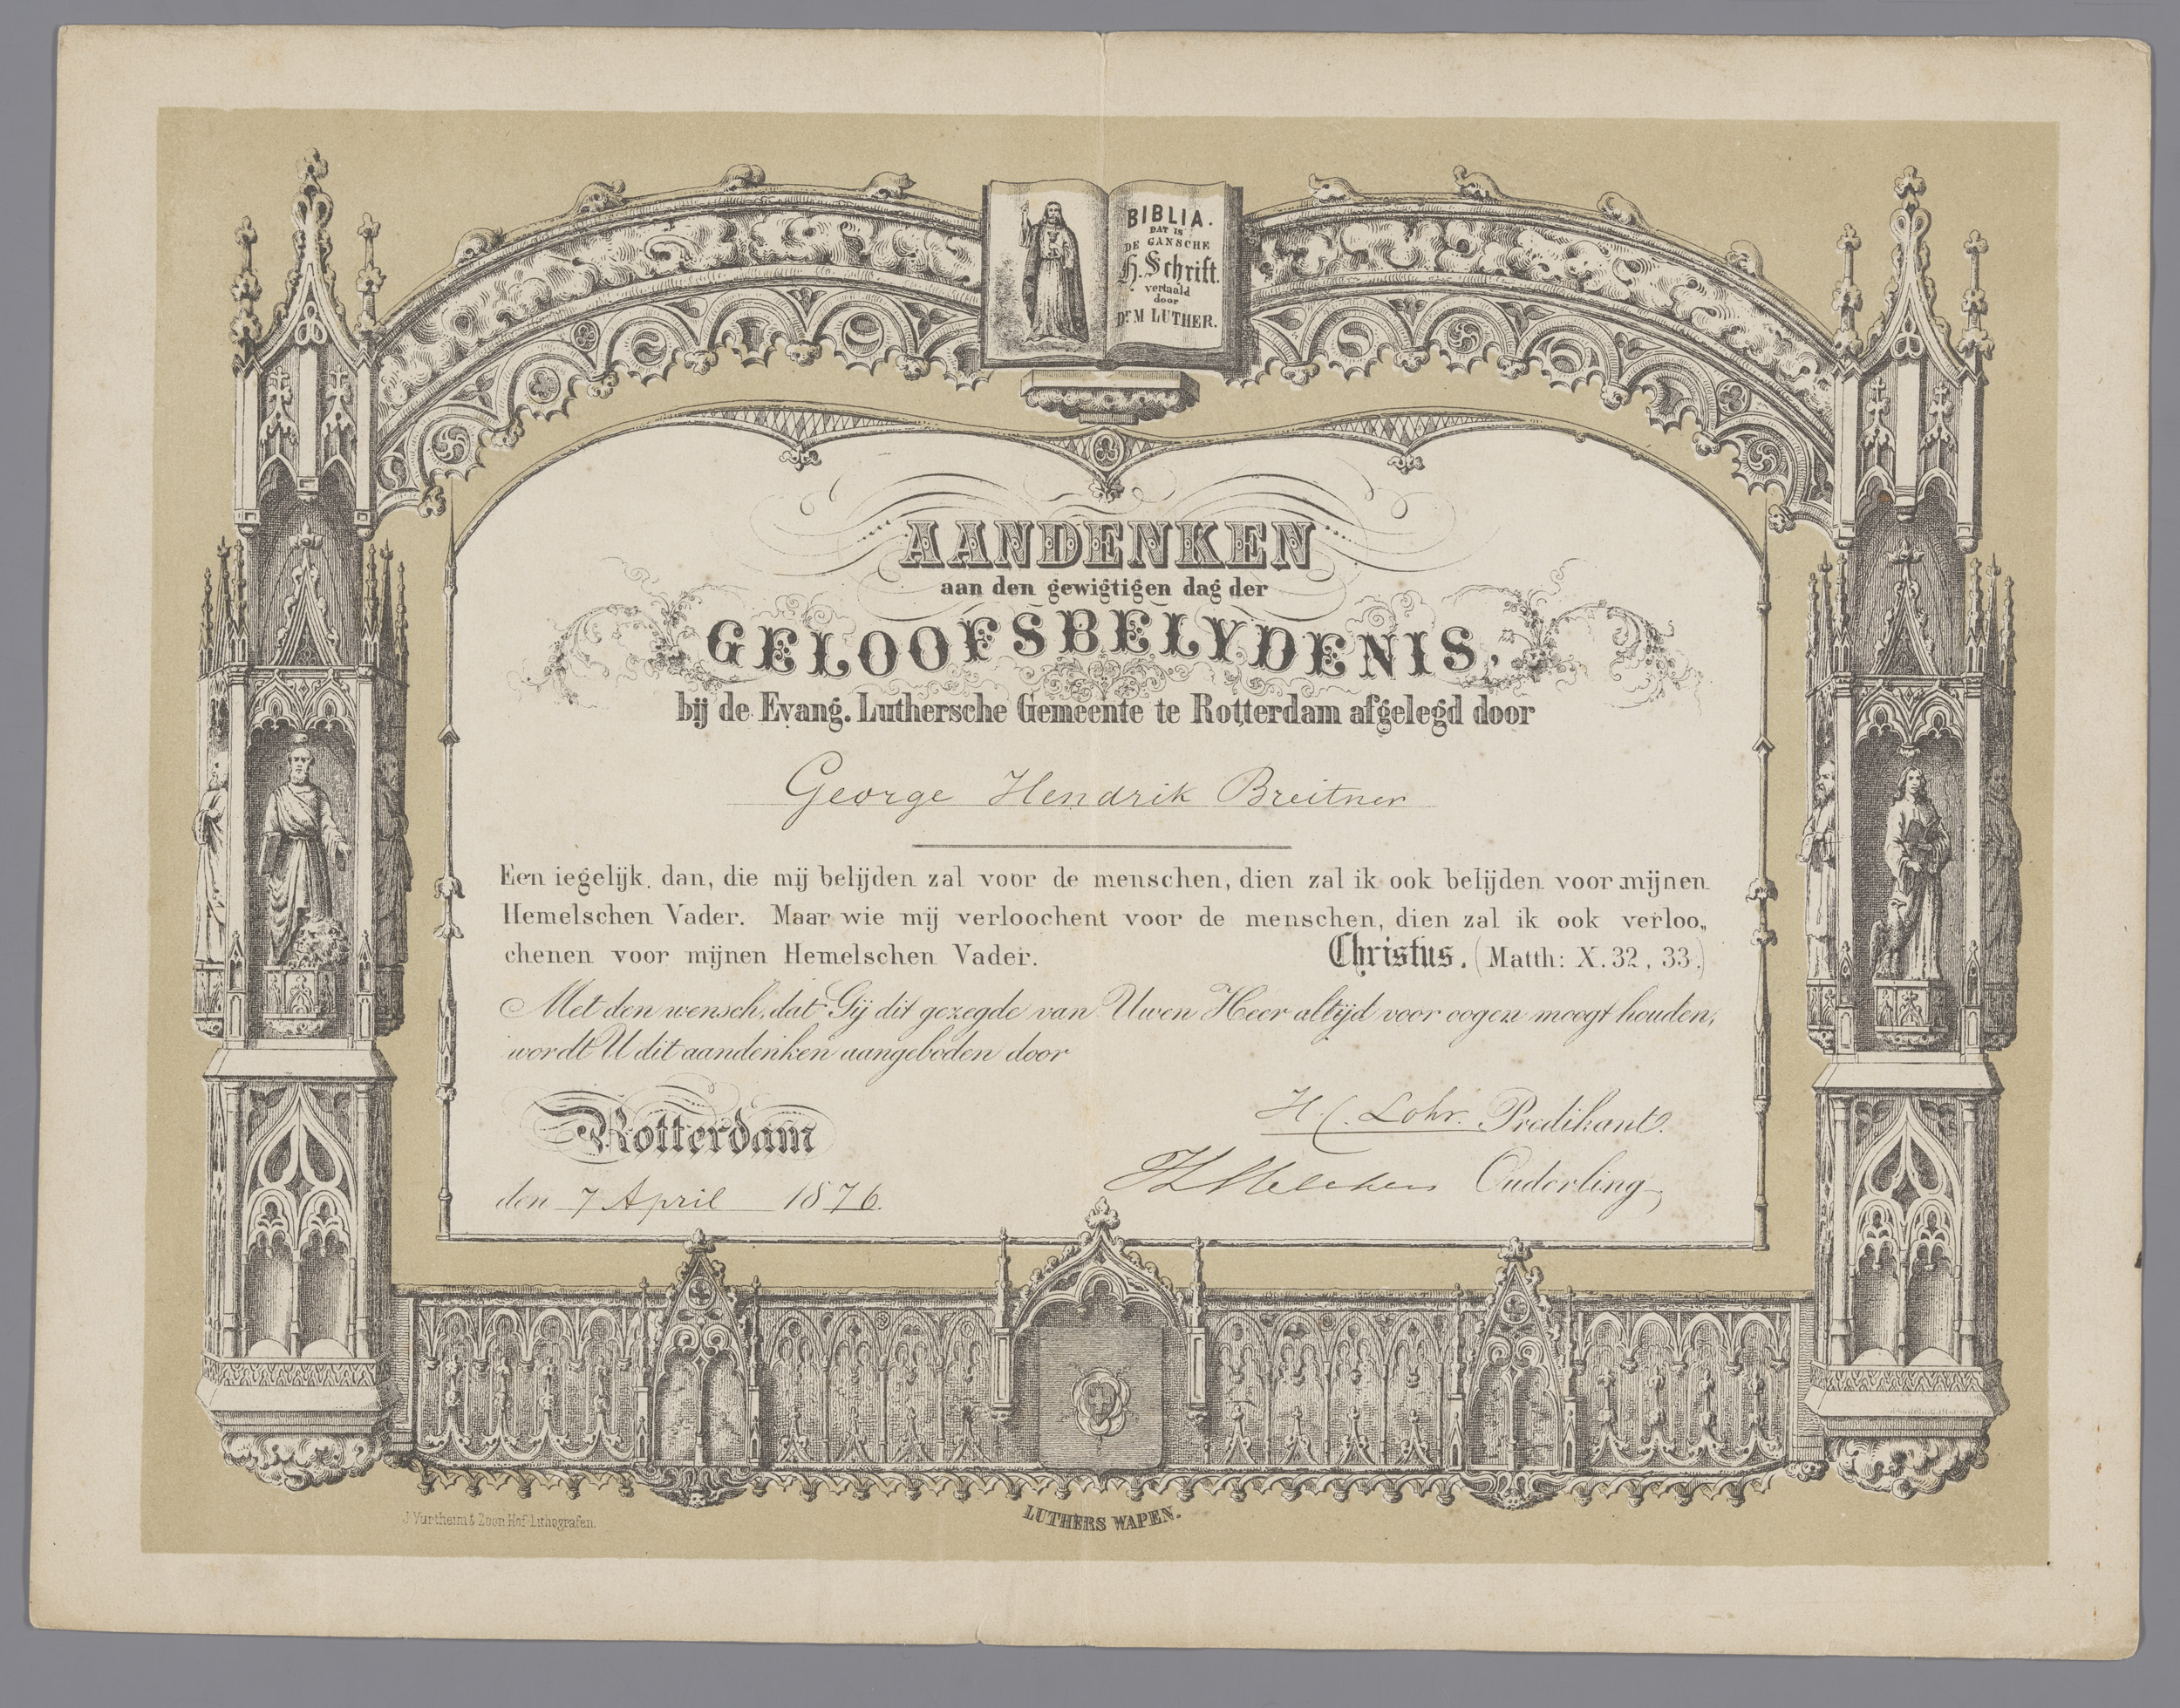 BIBLIA.
DAT IS
DE GANSCHE
H. Schrift.
vertaald
door
Dr. M LUTHER.
AANDENKEN
aan den gewigtigen dag der
GELOOFSBELYDENIS,
bij de Evang. Luthersche Gemeente te Rotterdam afgelegd door
George Hendrik Breitner
Een iegelijk dan, die mij belijden zal voor de menschen, dien zal ik ook belijden voor mijnen
Hemelschen Vader. Maar wie mij verloochent voor de menschen, dien zal ik ook verloo„
chenen voor mijnen Hemelschen Vader. Christus. (Matth: X. 32, 33.)
Met den wensch, dat Gij dit gezegde van Uwen Heer altijd voor oogen moogt houden,
wordt U dit aandenken aangeboden door
H. C. Lohr. Predikant.
Rotterdam
Ouderling
den 7 April 1876.
J. Vurtheim & Zoon Hof Lithografen.
LUTHERS WAPEN.